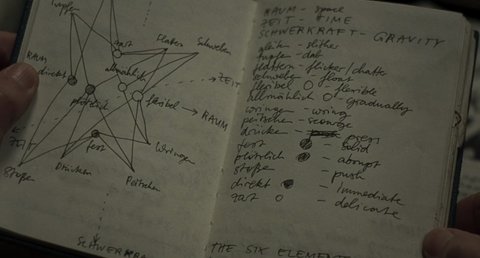 Tupfen
zart
Flattern
Schweben
RAUM
direkt
allmählich
ZEIT
plötzlich
flexibel
RAUM
ZEIT
fest
Wringen
Stoßen
Drücken
Peitschen
SCHWERKRA
RAUM - space
ZEIT - TIME
SCHWERKRAFT - GRAVITY
gleiten - slither
tupfen - dab
flattern - flicker/
schweben - float
flexibel - flexible
allmählich - gradually
wringen - wring
peitschen - scourge
drücken - press
fest - solid
plötzlich - abrupt
stoßen - push
direkt - immediate
zart - delicate
THE SIX ELEMEN